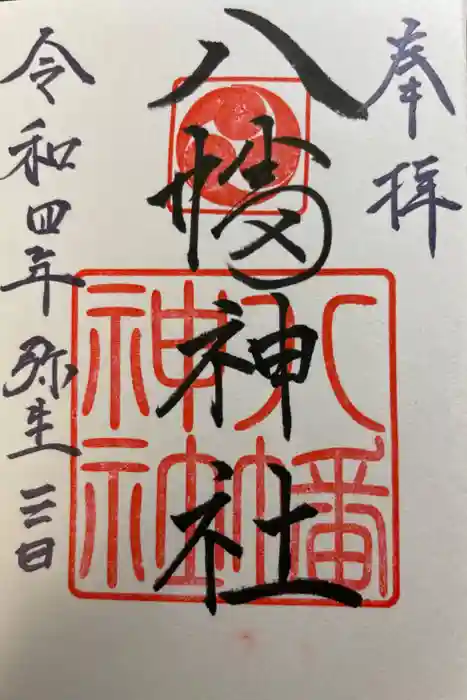 奉拝
八幡神社
八幡
神社
令和四年 弥生 三日